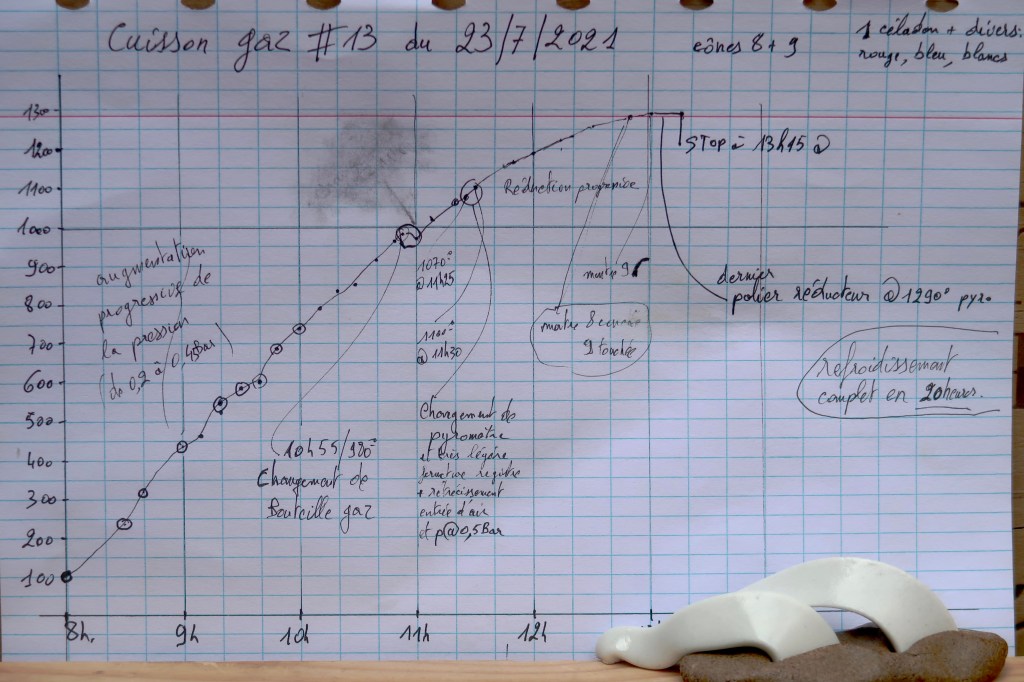 Cuisson gaz #13 du 23/7/2021
cônes 8 + 9
1 céladon + divers:
rouge, bleu, blancs
1300
1200
1100
1000
900
800
700
600
500
400
300
200
100
8h.
9h
10h
11h
12h
STOP à 13h15 @
Réduction progressive
augmentation
progressive de
la pression
(de 0,2 à 0,4Bar)
1070°
@ 11h25
1100°
@ 11h30
montre 9
montre 8
9 touchée
dernier
palier réducteur @ 1290° pyro
refroidissement
complet en 20heures.
10h55/980°
Changement de
Bouteille gaz
Changement de
pyromètre
et très légère
registre
+ rétrécissement
entrée d'air
et p@0,5Bar